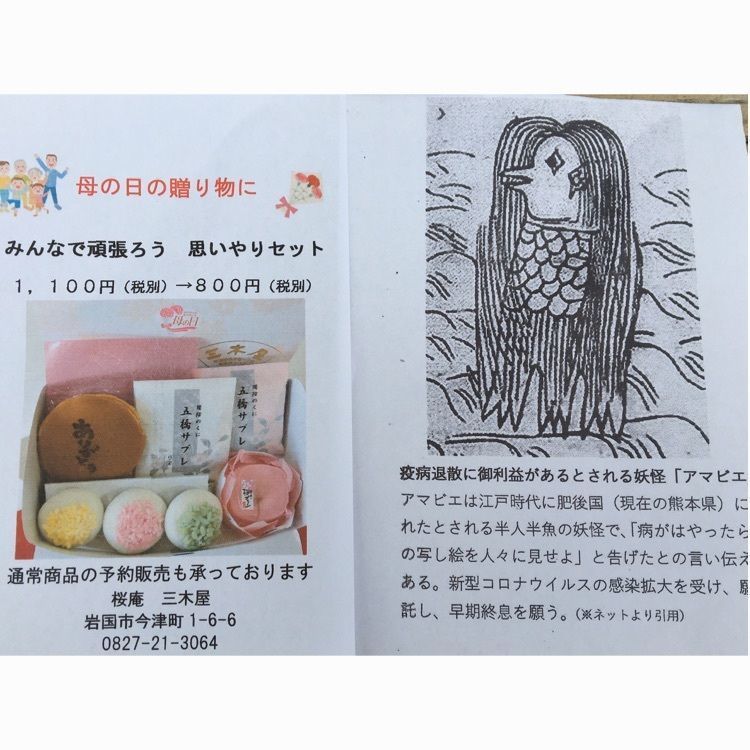 母の日の贈り物に
みんなで頑張ろう 思いやりセット
1,100円(税別)→800円(税別)
母の日
三木屋
五橋サブレ
五橋サブレ
通常商品の予約販売も承っております
桜庵 三木屋
岩国市今津町1-6-6
0827-21-3064
疫病退散に御利益があるとされる妖怪「アマビエ
アマビエは江戸時代に肥後国(現在の熊本県)に
れたとされる半人半魚の妖怪で、「病がはやったら
の写し絵を人々に見せよ」と告げたとの言い伝え
ある。新型コロナウイルスの感染拡大を受け、願
託し、早期終息を願う。(※ネットより引用)